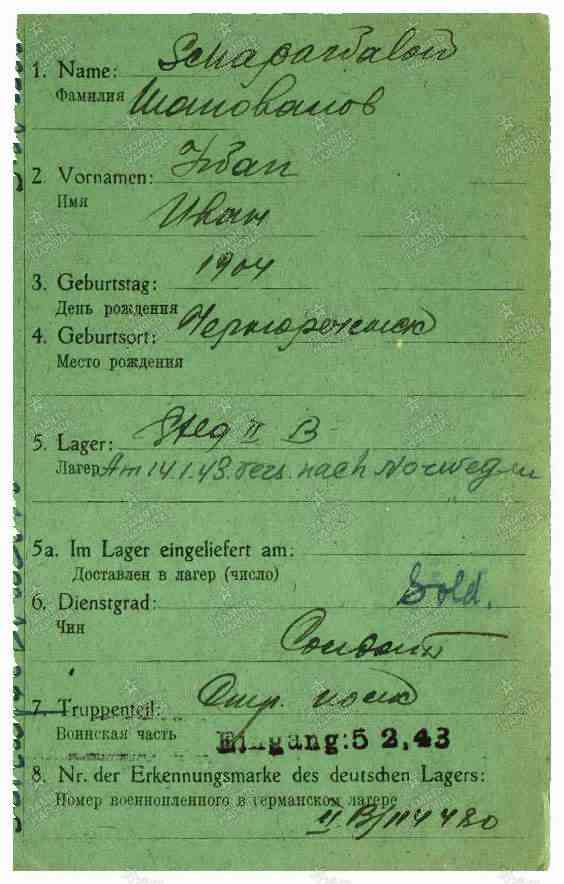 1. Name: Schapawalow
Фамилия Шаповалов
2. Vornamen: Iwan
Имя Иван
3. Geburtstag: 1904
День рождения
4. Geburtsort: Черноречинск
Место рождения
5. Lager: Stlg II B
Лагерь Am 14.1.43. vers. nach Norwegen
5a. Im Lager eingeliefert am:
Доставлен в лагерь (число)
6. Dienstgrad: Sold.
Чин Солдат
7. Truppenteil: Стр. полк
Воинская часть Eingang: 5 2. 43
8. Nr. der Erkennungsmarke des deutschen Lagers:
Номер военнопленного в германском лагере
II B/114480